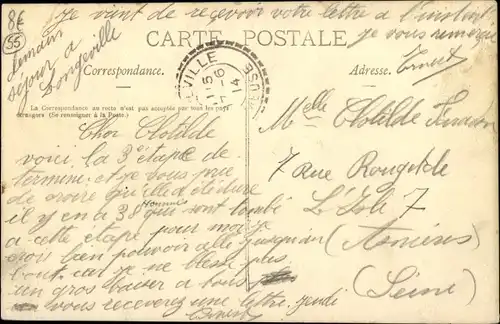 Je viens de recevoir votre lettre a l'instant
je vous remercie
Ernest
8€
55
demain
séjour a
Longeville
CARTE POSTALE
Correspondance.
Adresse.
La Correspondance au recto n'est pas acceptée par tous les pays
étrangers (Se renseigner à la Poste.)
VILLE
15
7-6
14
MEUSE
Cher Clotilde
voici la 3e étape de
terminé et je vous prie
de croire qu'elle dure
il y en a 38 hommes qui sont tombé
a cette étape pour moi je
crois bien pouvoir allé jusqu'au
bout car je ne blesse plus
un gros baiser a tous
vous receverez une lettre jeudi
Ernest
Melle Clotilde
7 Rue Rouget de
L'Isle 7
(Asnières)
(Seine)